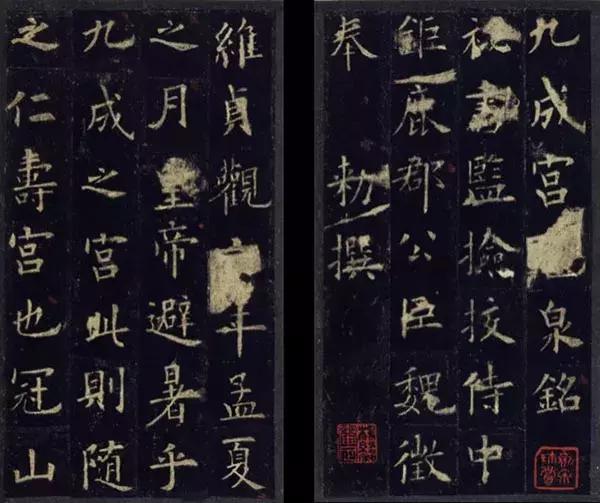 九成宮泉銘
祕書監撿挍侍中
鉅鹿郡公臣魏徵
奉 勑撰
維貞觀六年孟夏
之月皇帝避暑乎
九成之宮此則隨
之仁壽宮也冠山